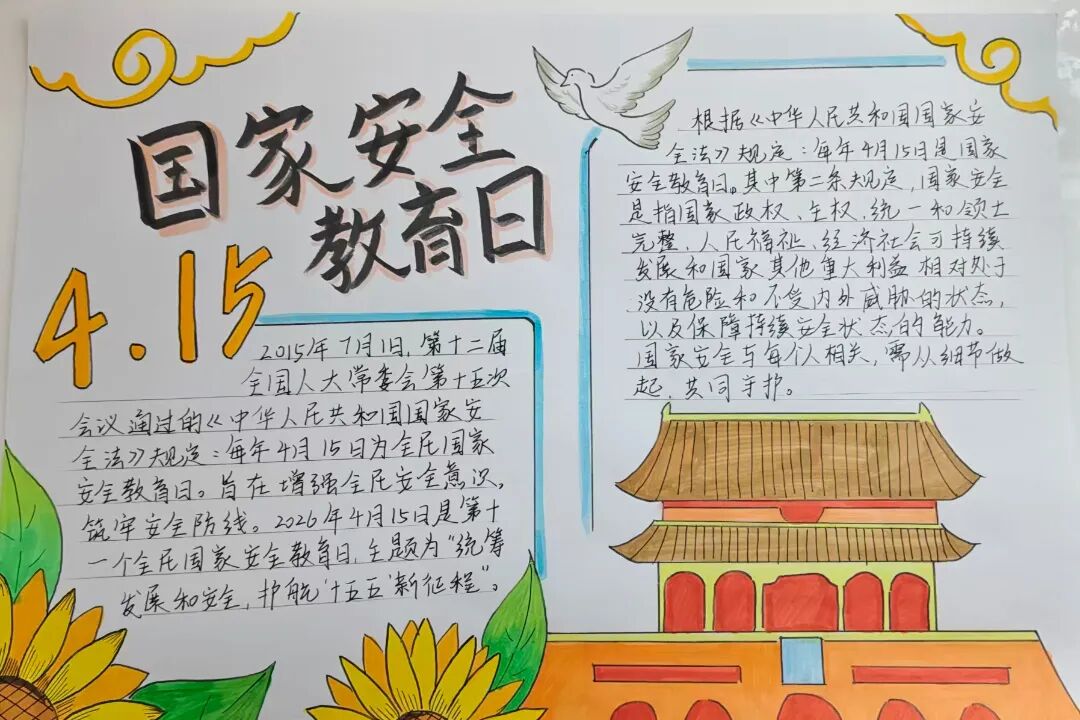 国家安全
教育日
4.15
2015年7月1日，第十二届
全国人大常委会第十五次
会议通过的《中华人民共和国国家安
全法》规定：每年4月15日为全民国家
安全教育日。旨在增强全民安全意识，
筑牢安全防线。2026年4月15日是第十
一个全民国家安全教育日，主题为“统筹
发展和安全，护航‘十五五’新征程”。
根据《中华人民共和国国家安
全法》规定：每年4月15日是国家
安全教育日。其中第二条规定，国家安全
是指国家政权、主权、统一和领土
完整、人民福祉、经济社会可持续
发展和国家其他重大利益相对处于
没有危险和不受内外威胁的状态，
以及保障持续安全状态的能力。
国家安全与每个人相关，需从细节做
起，共同守护。